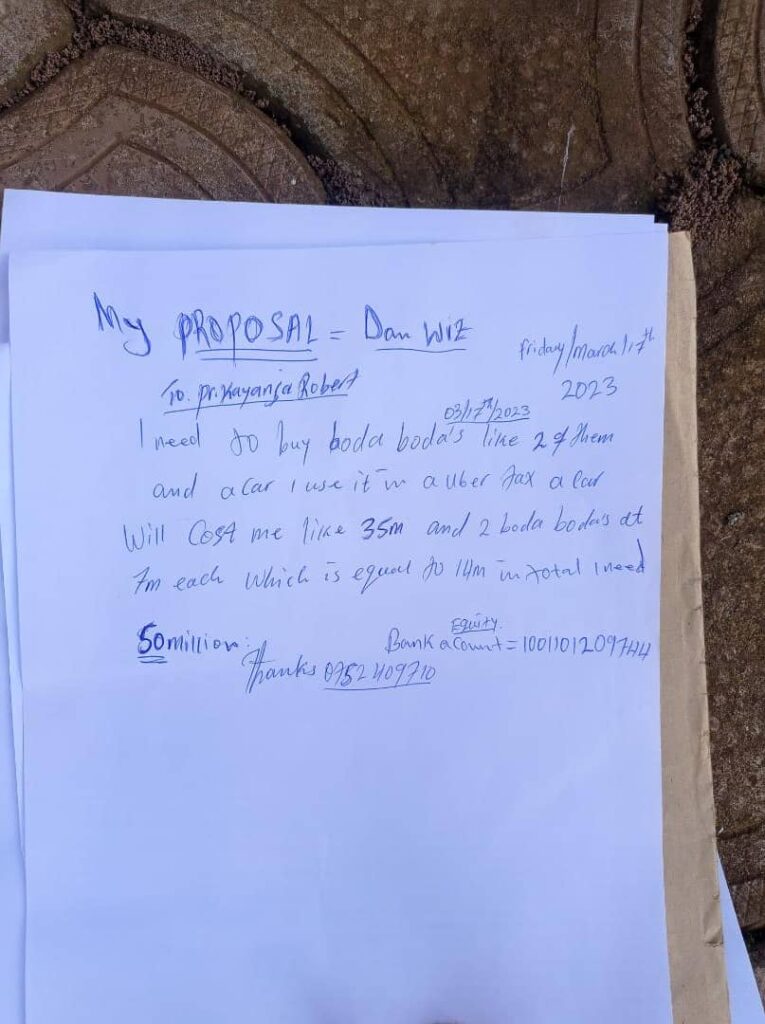 My PROPOSAL = Dan Wiz
Friday/March/17th
2023
To. Pr. Kayanja Robert
03/17th/2023
I need to buy boda boda's like 2 of them
and a car I use it in a uber tax a car
Will Cost me like 35m and 2 boda boda's at
7m each which is equal to 14m in total I need
50 million:
Equity.
Bank acount = 1001101209744
Thanks 0752409710